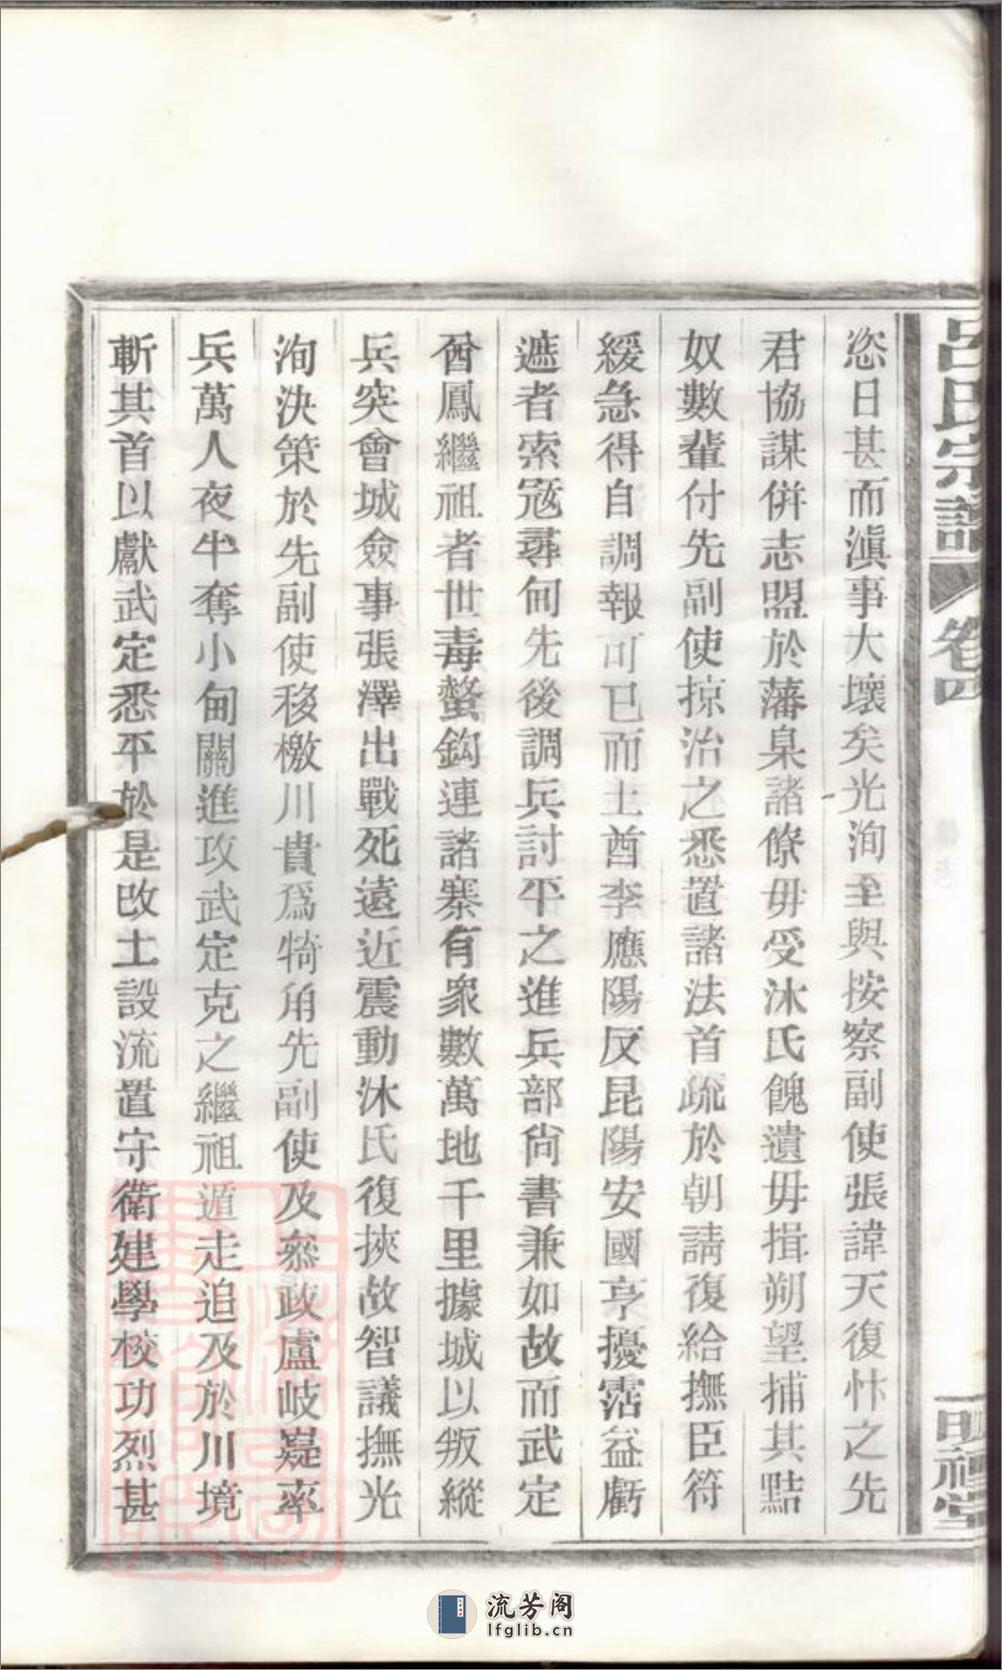 呂氏宗譜 卷四 明禋堂
恣日甚而滇事大壞矣光洵至與按察副使張諱天復忭之先
君協謀併志盟於藩臬諸僚毋受沐氏餽遺毋揖朔望捕其黠
奴數輩付先副使掠治之悉置諸法首疏於朝請復給撫臣符
緩急得自調報可已而土酋李應陽反昆陽安國亨擾霑益虧
遮者索冦尋甸先後調兵討平之進兵部尙書兼如故而武定
酋鳳繼祖者世毒螫鈎連諸寨有衆數萬地千里據城以叛縱
兵突會城僉事張澤出戰死遠近震動沐氏復挾故智議撫光
洵決策於先副使移檄川貴爲犄角先副使及叅政盧岐嶷率
兵萬人夜半奪小甸關進攻武定克之繼祖遁走追及於川境
斬其首以獻武定悉平於是改土設流置守衛建學校功烈甚
流芳阁
lfglib.cn